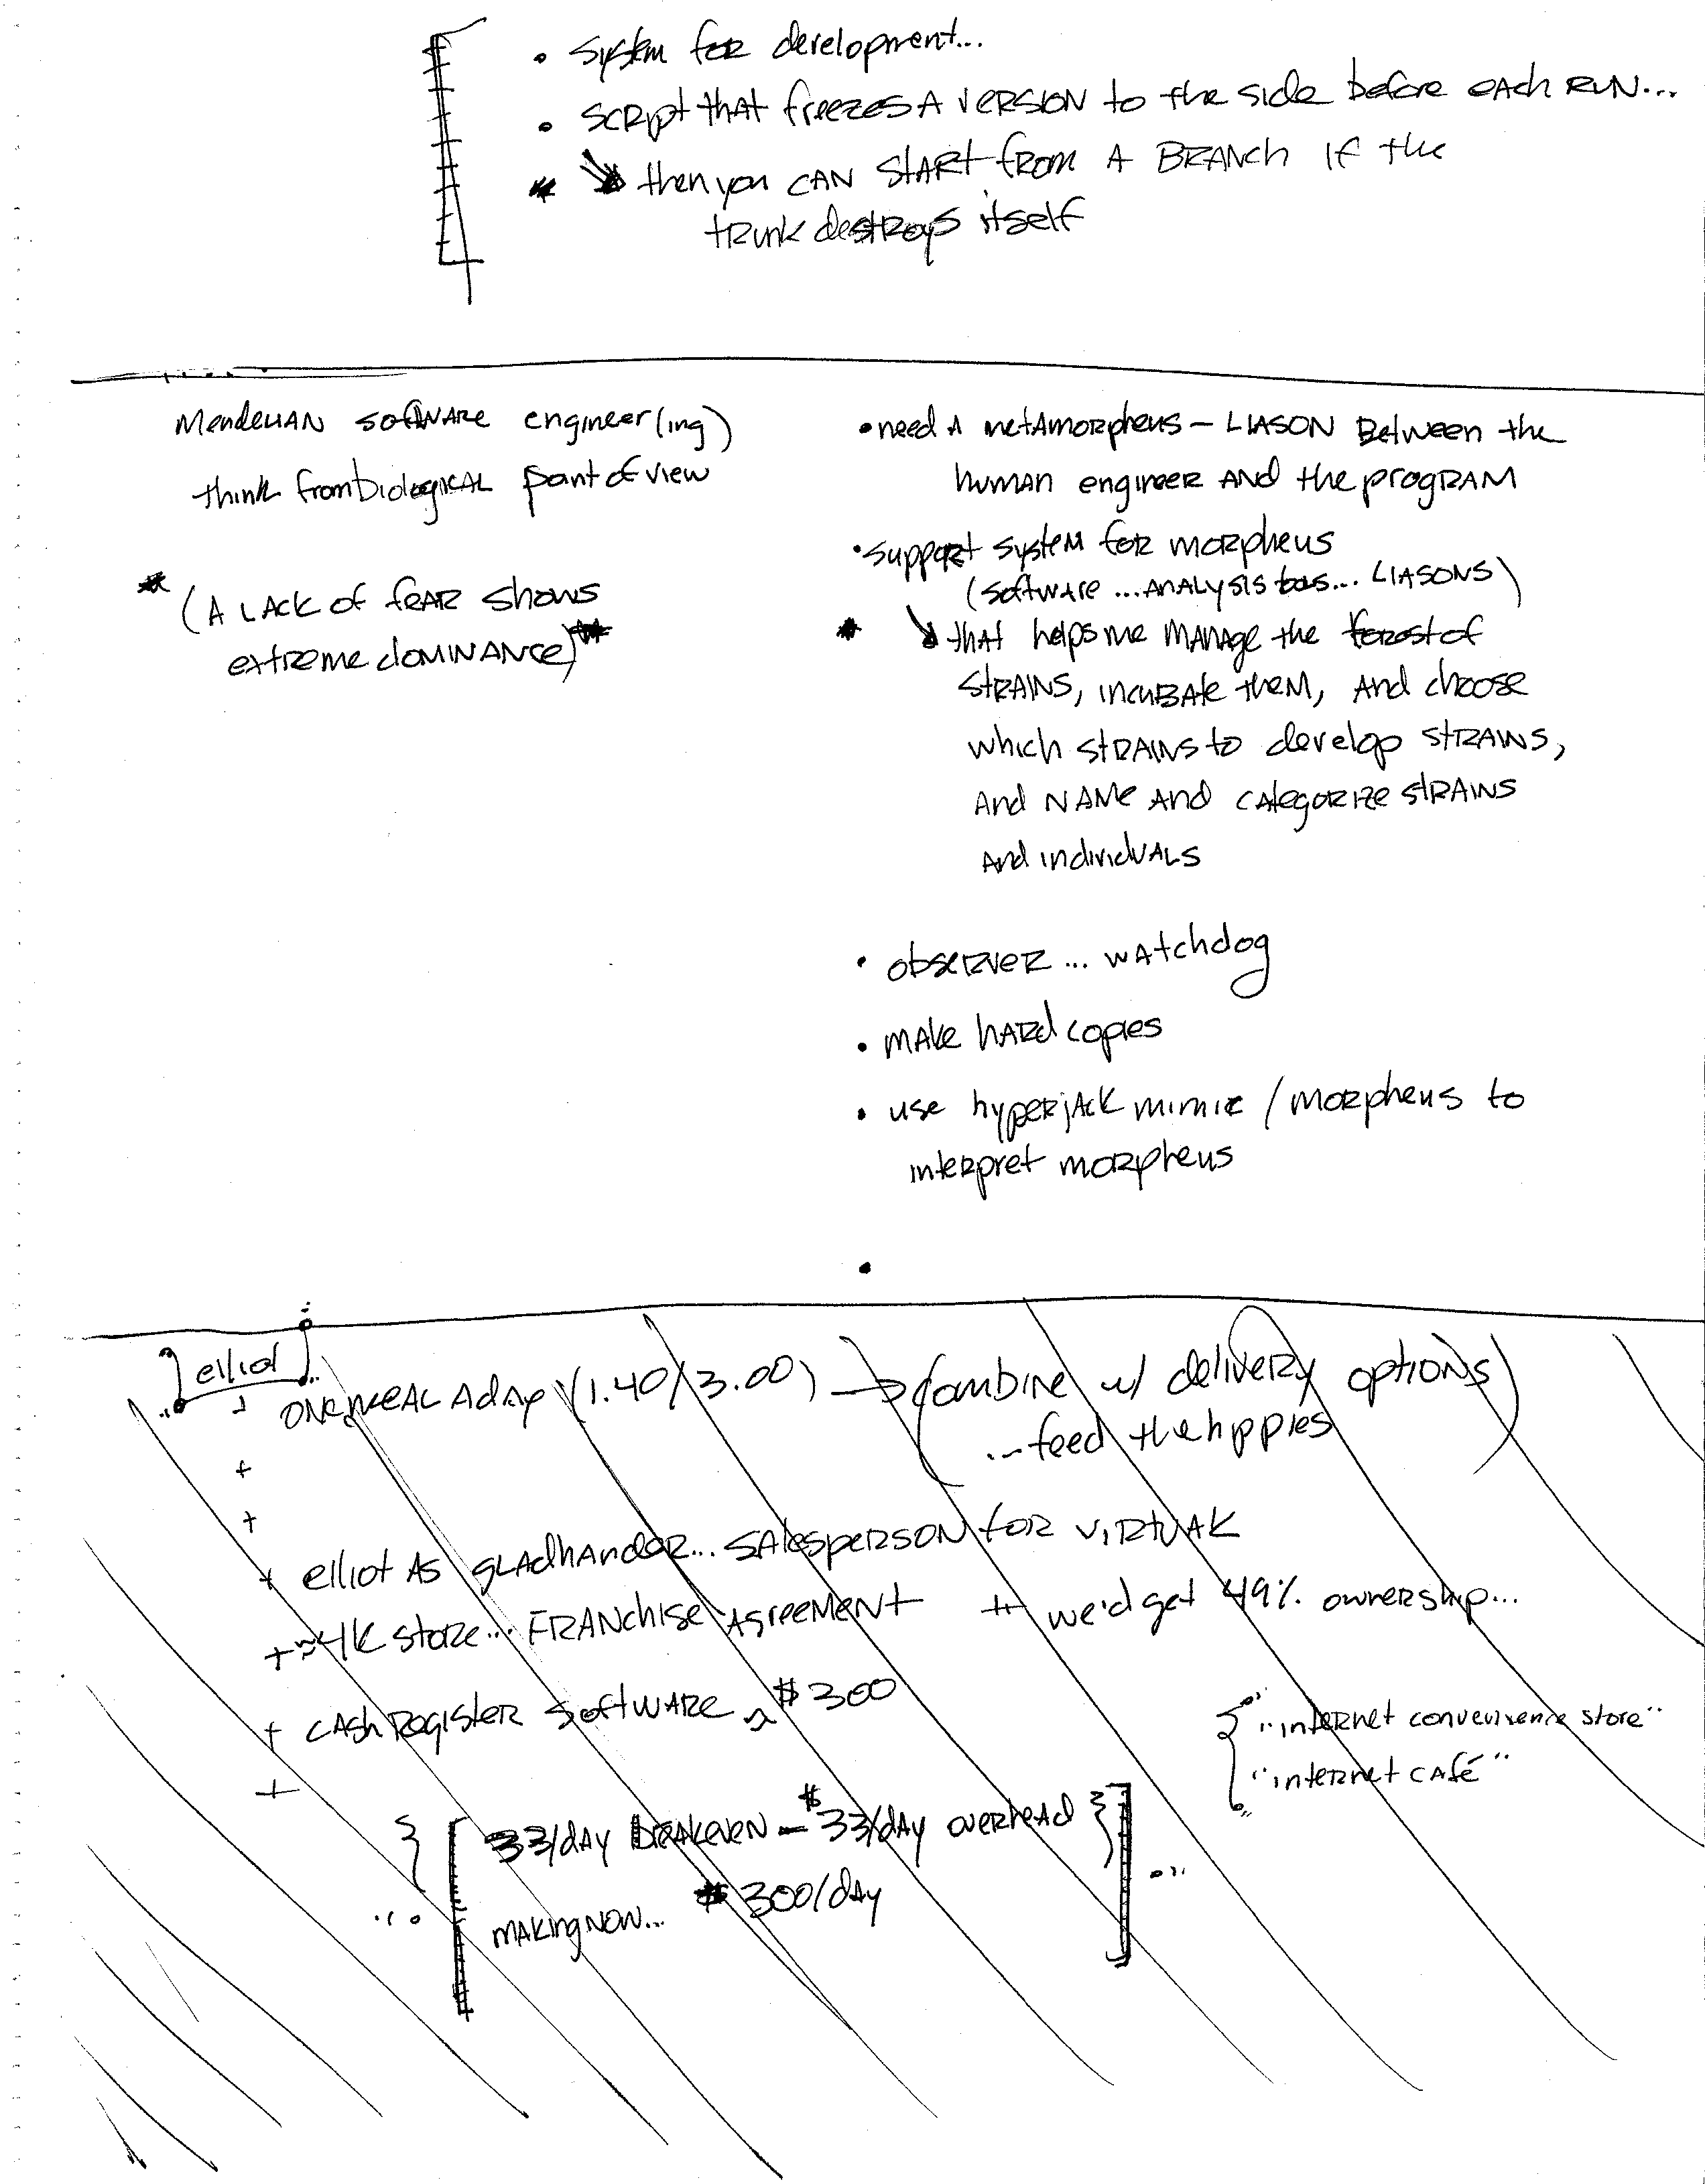 • System for development...
• script that freezes A version to the side before each run...
* then you can start from A branch if the
trunk destroys itself
Mendelian software engineer(ing)
think from biological point of view
* (A lack of fear shows
extreme dominance)*
• need A metamorpheus – LIASON Between the
human engineer and the program
• support system for morpheus
(software ... analysis ... LIASONS)
* that helps me manage the forest of
strains, incubate them, and choose
which strains to develop strains,
and name and categorize strains
and individuals
• observer ... watchdog
• make hard copies
• use hyperjack mimic / morpheus to
interpret morpheus
elliot
+ one meal a day (1.40/3.00) → (combine w/ delivery options)
... feed the hippies
+
+
+ elliot as gladhander... salesperson for virtuAK
+ ≈ 4K store... franchise agreement ++ we'd get 49% ownership...
+ cash register software ~ $300
+
"internet convenience store"
"internet café"
33/day breakeven – $33/day overhead
making now... $300/day